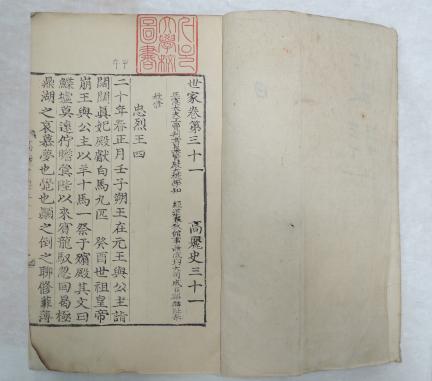 世家卷第三十一 高麗史三十一
正憲大夫工曹判書集賢殿大提學知 經筵春秋館事兼成均大司成臣鄭麟趾奉
敎修
忠烈王四
二十年春正月壬子朔王在元王與公主詣
闊闊眞妃殿獻白馬九匹 癸酉世祖皇帝
崩王與公主以羊十馬一祭于殯殿其文曰
鰈墟莫遠佇瞻蓂陛以來賓龍馭忽回曷極
鼎湖之哀慕夢也覺也顚之倒之聊修菲薄
圖書